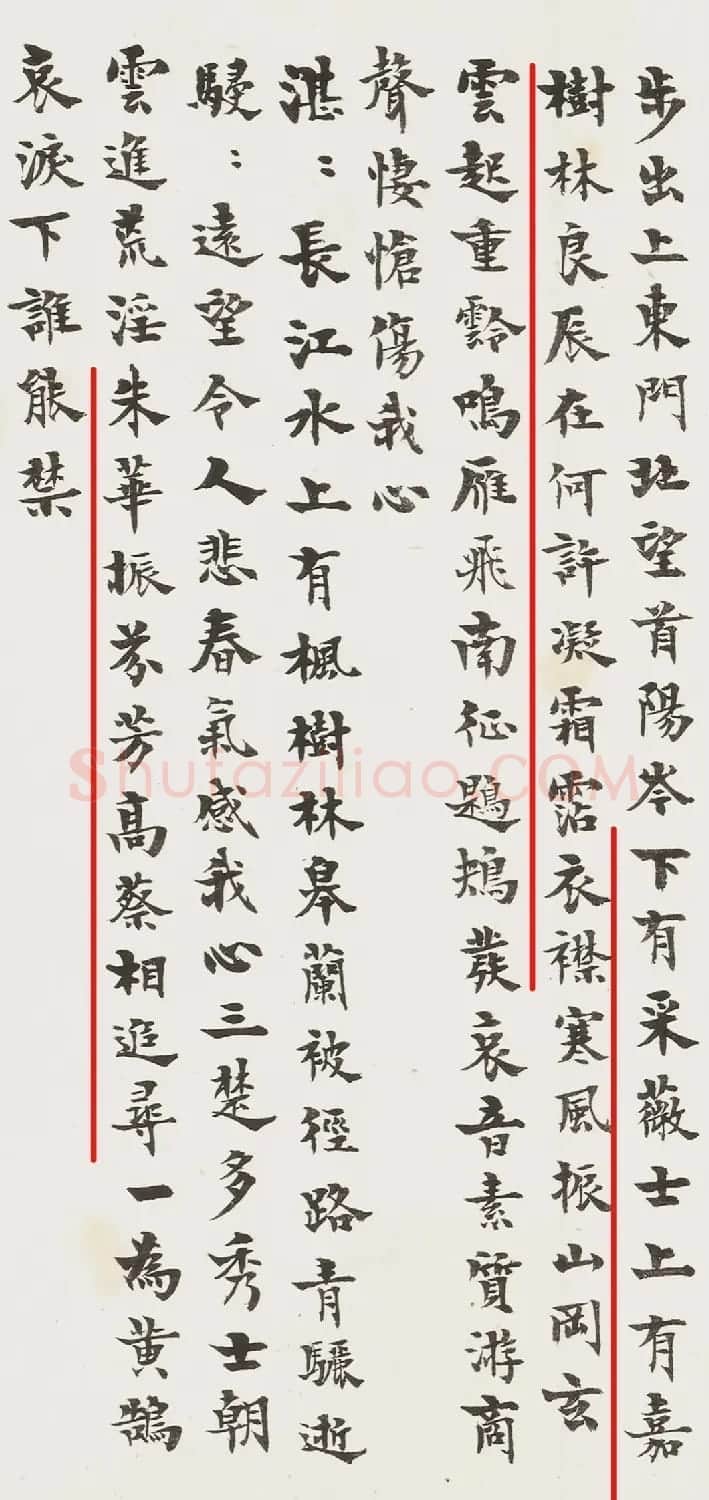 步出上東門北望首陽岑下有采薇士上有嘉
樹林良辰在何許凝霜霑衣襟寒風振山岡玄
雲起重霠鳴雁飛南征鶗鴂發哀音素質游商
聲悽愴傷我心
湛:長江水上有楓樹林皋蘭被徑路青驪逝
駸:遠望令人悲春氣感我心三楚多秀士朝
雲進荒淫朱華振芬芳高蔡相追尋一為黃鵠
哀淚下誰能禁
Shufaziliao.COM